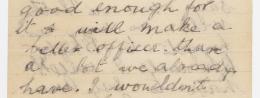 good enough for
it & will make a
better officer than
a lot we already
have. I wouldn't